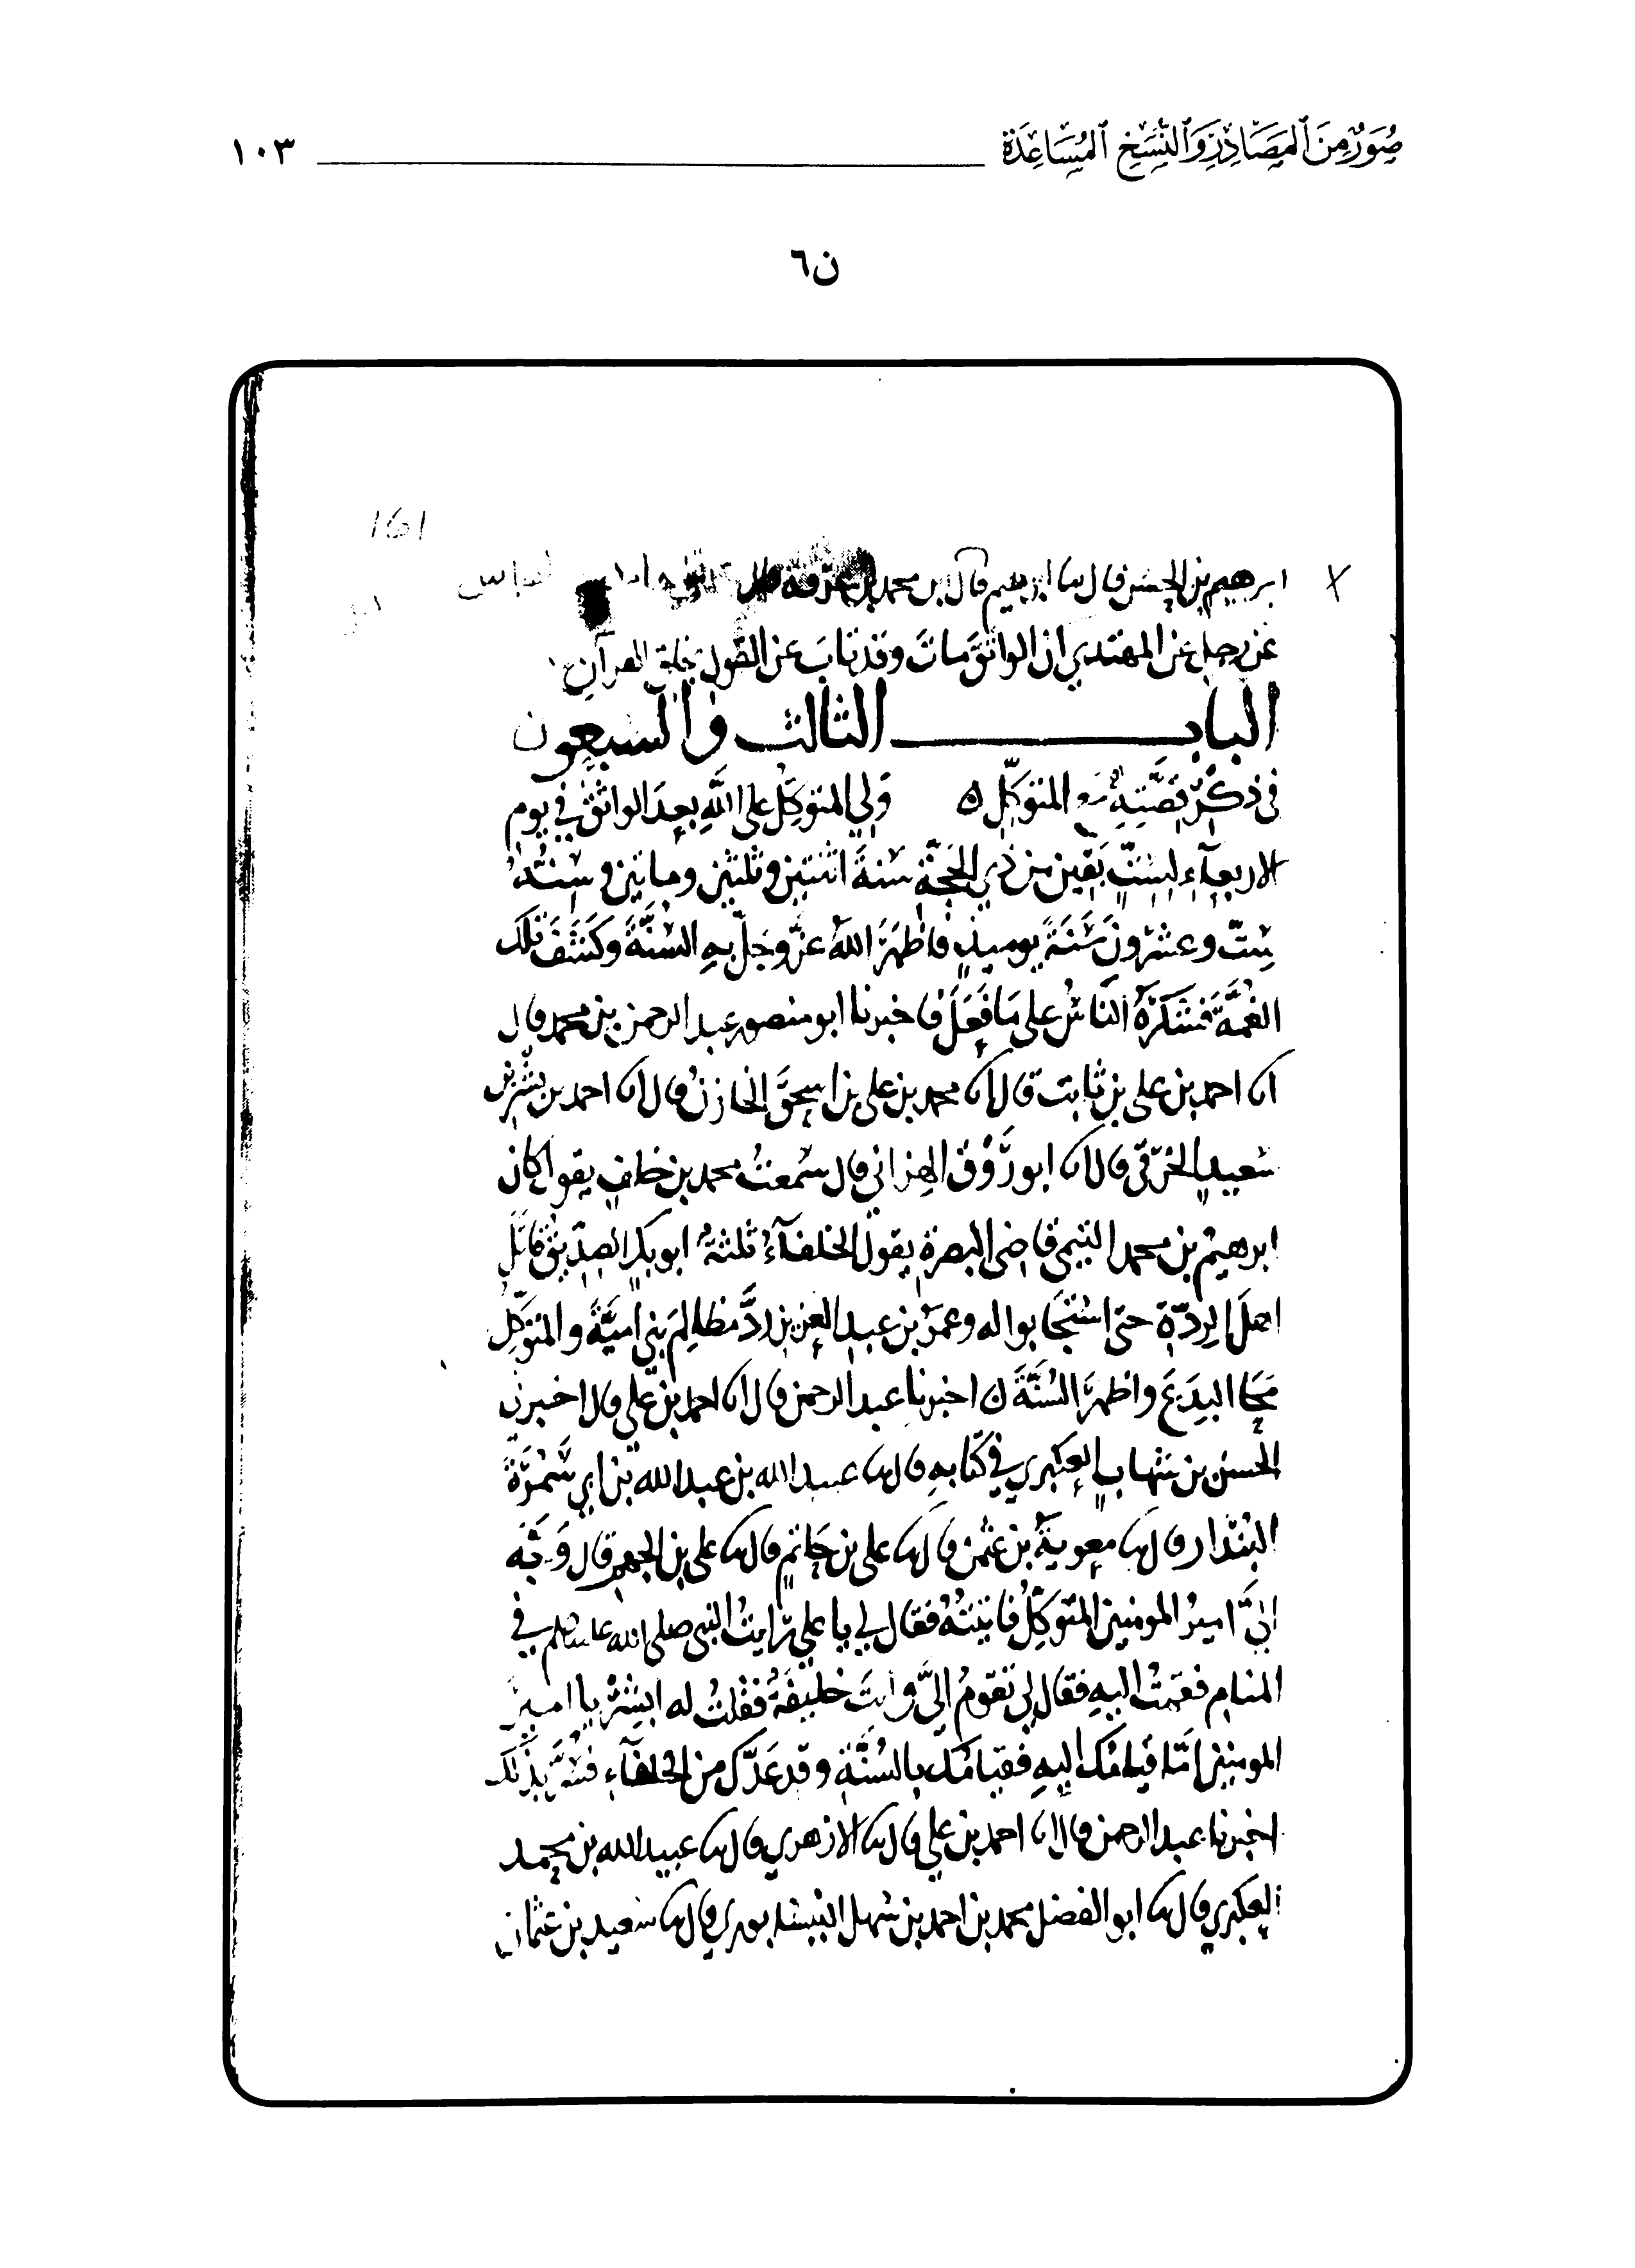 صُوَرٌ مِنَ ٱلمَصَادِرِ وَٱلنُّسَخِ ٱلمُسَاعِدَة
١٠٣
ن٦
161
ابرهيم بن الحسن قال ابرهيم قال محمد بن عرفة
عن رجل عن المهتدي ان الواثقَ ماتَ وقد تابَ عن القول بخلق القرآن
الباب الثالث والسبعون
في ذكر قصَّتِهِ مع المتوكّل ه وَلِيَ المتوكِّلُ على اللَّهِ بعدَ الواثق في يوم
الاربعاءِ لِسِتٍّ بَقِينَ من ذي الحجّة سَنةَ اثنتين وثلثين وماتين وسِنُّهُ
سِتّ وعشرونَ سَنَةً يوميذٍ فاظهَرَ اللهُ عزَّ وجلَّ بهِ السُّنَّةَ وكَشَفَ تلك
الغُمَّةَ فشكَرَهُ النّاسُ على مَا فَعَلَ فاخبرنا ابو منصور عبد الرحمن بن محمد قال
انا احمد بن علي بن ثابت قال انا محمد بن علي بن اسحقَ الخازنُ قال انا احمد بن بشر بن
سَعيدٍ الخرَقّي قال انا ابو رَوْق الهِزاني قال سَمعتُ محمد بن خلفٍ يقول كان
ابرهيمُ بن محمد التيمي قاضي البصرة يقول الخلفآءُ ثلثةٌ ابو بكر الصدّيق قاتَلَ
اهلَ الردّةِ حتى استجابوا له وعمرُ بن عبد العزيز ردَّ مظالِمَ بني اميّةَ والمتوَكِّل
مَحَا البِدَعَ واظهرَ السُّنَّةَ ه اخبرنا عبد الرحمن قال انا احمد بن علي قال اخبرني
الحسن بن شهابٍ العكبري في كتابهِ قال نا عبيد الله بن عبد الله بن ابي سَمُرَةَ
البُندار قال نا معويةُ بن عثمن قال نا علي بن حَاتمٍ قال نا علي بن الجهم قال وَجَّه
اليَّ اميرُ المومنين المتوكِّلُ فاتيتُهُ فقال لي يا علي رَايتُ النبي صلى الله عليه وسلم في
المنام فقمتُ اليهِ فقال لي تقومُ اليَّ وانتَ خليفةٌ فقلتُ له ابشِرْ يا اميرَ
المومنين امّا قيامُك اليهِ فقيامُك بالسُّنَّةِ وقد عَدَّك من الخلفآءِ فسُرَّ بذلك
اخبرنا عبد الرحمن قال انا احمد بن علي قال نا الازهري قال نا عبيد الله بن محمد
العكبري قال نا ابو الفضل محمد بن احمد بن سَهل النيسابوري قال نا سَعيد بن عثمان